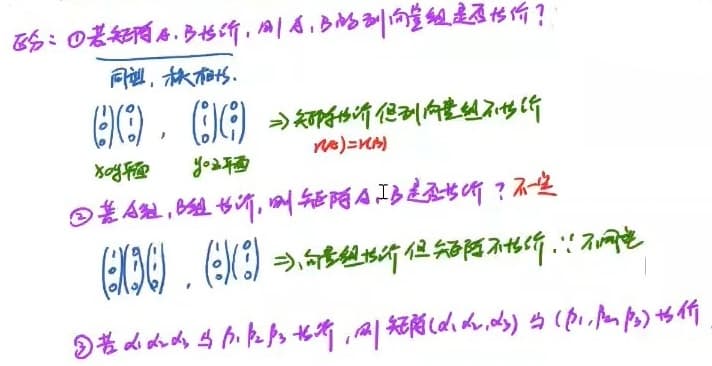 区分:①若矩阵A、B等价,则A、B的列向量组是否等价?
同型,秩相等.
(1 0 0)(0 1 0) , (0 1 0)(0 0 1) ⇒ 矩阵等价但列向量组不等价
xoy平面 yoz平面 r(A)=r(B)
②若A组,B组等价,则矩阵A、B是否等价?不一定
(1 0 0)(0 1 0)(1 1 0) , (1 0)(0 1 0) ⇒ 向量组等价但矩阵不等价 ∵不同型
③若α₁α₂α₃与β₁β₂β₃等价,则矩阵(α₁,α₂,α₃)与(β₁,β₂,β₃)等价